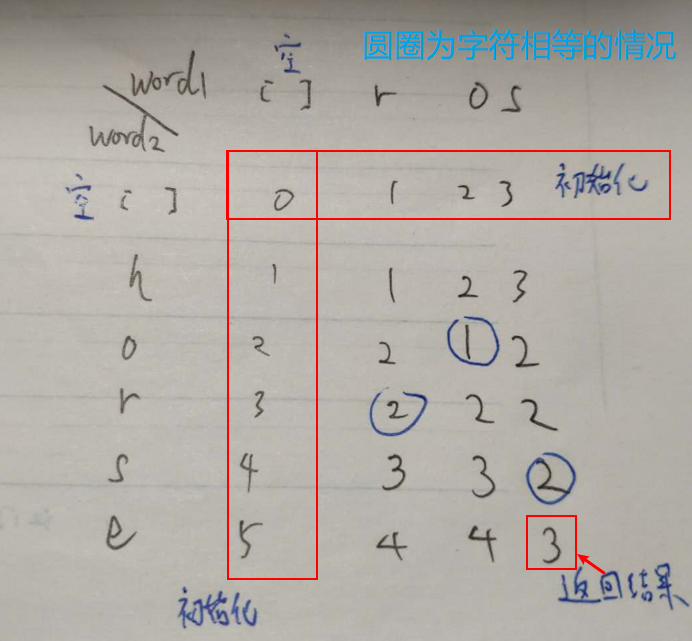 圆圈为字符相等的情况
空
word1 [ ] r o s
word2
空 [ ] 0 1 2 3 初始化
h 1 1 2 3
o 2 2 1 2
r 3 2 2 2
s 4 3 3 2
e 5 4 4 3
初始化 返回结果